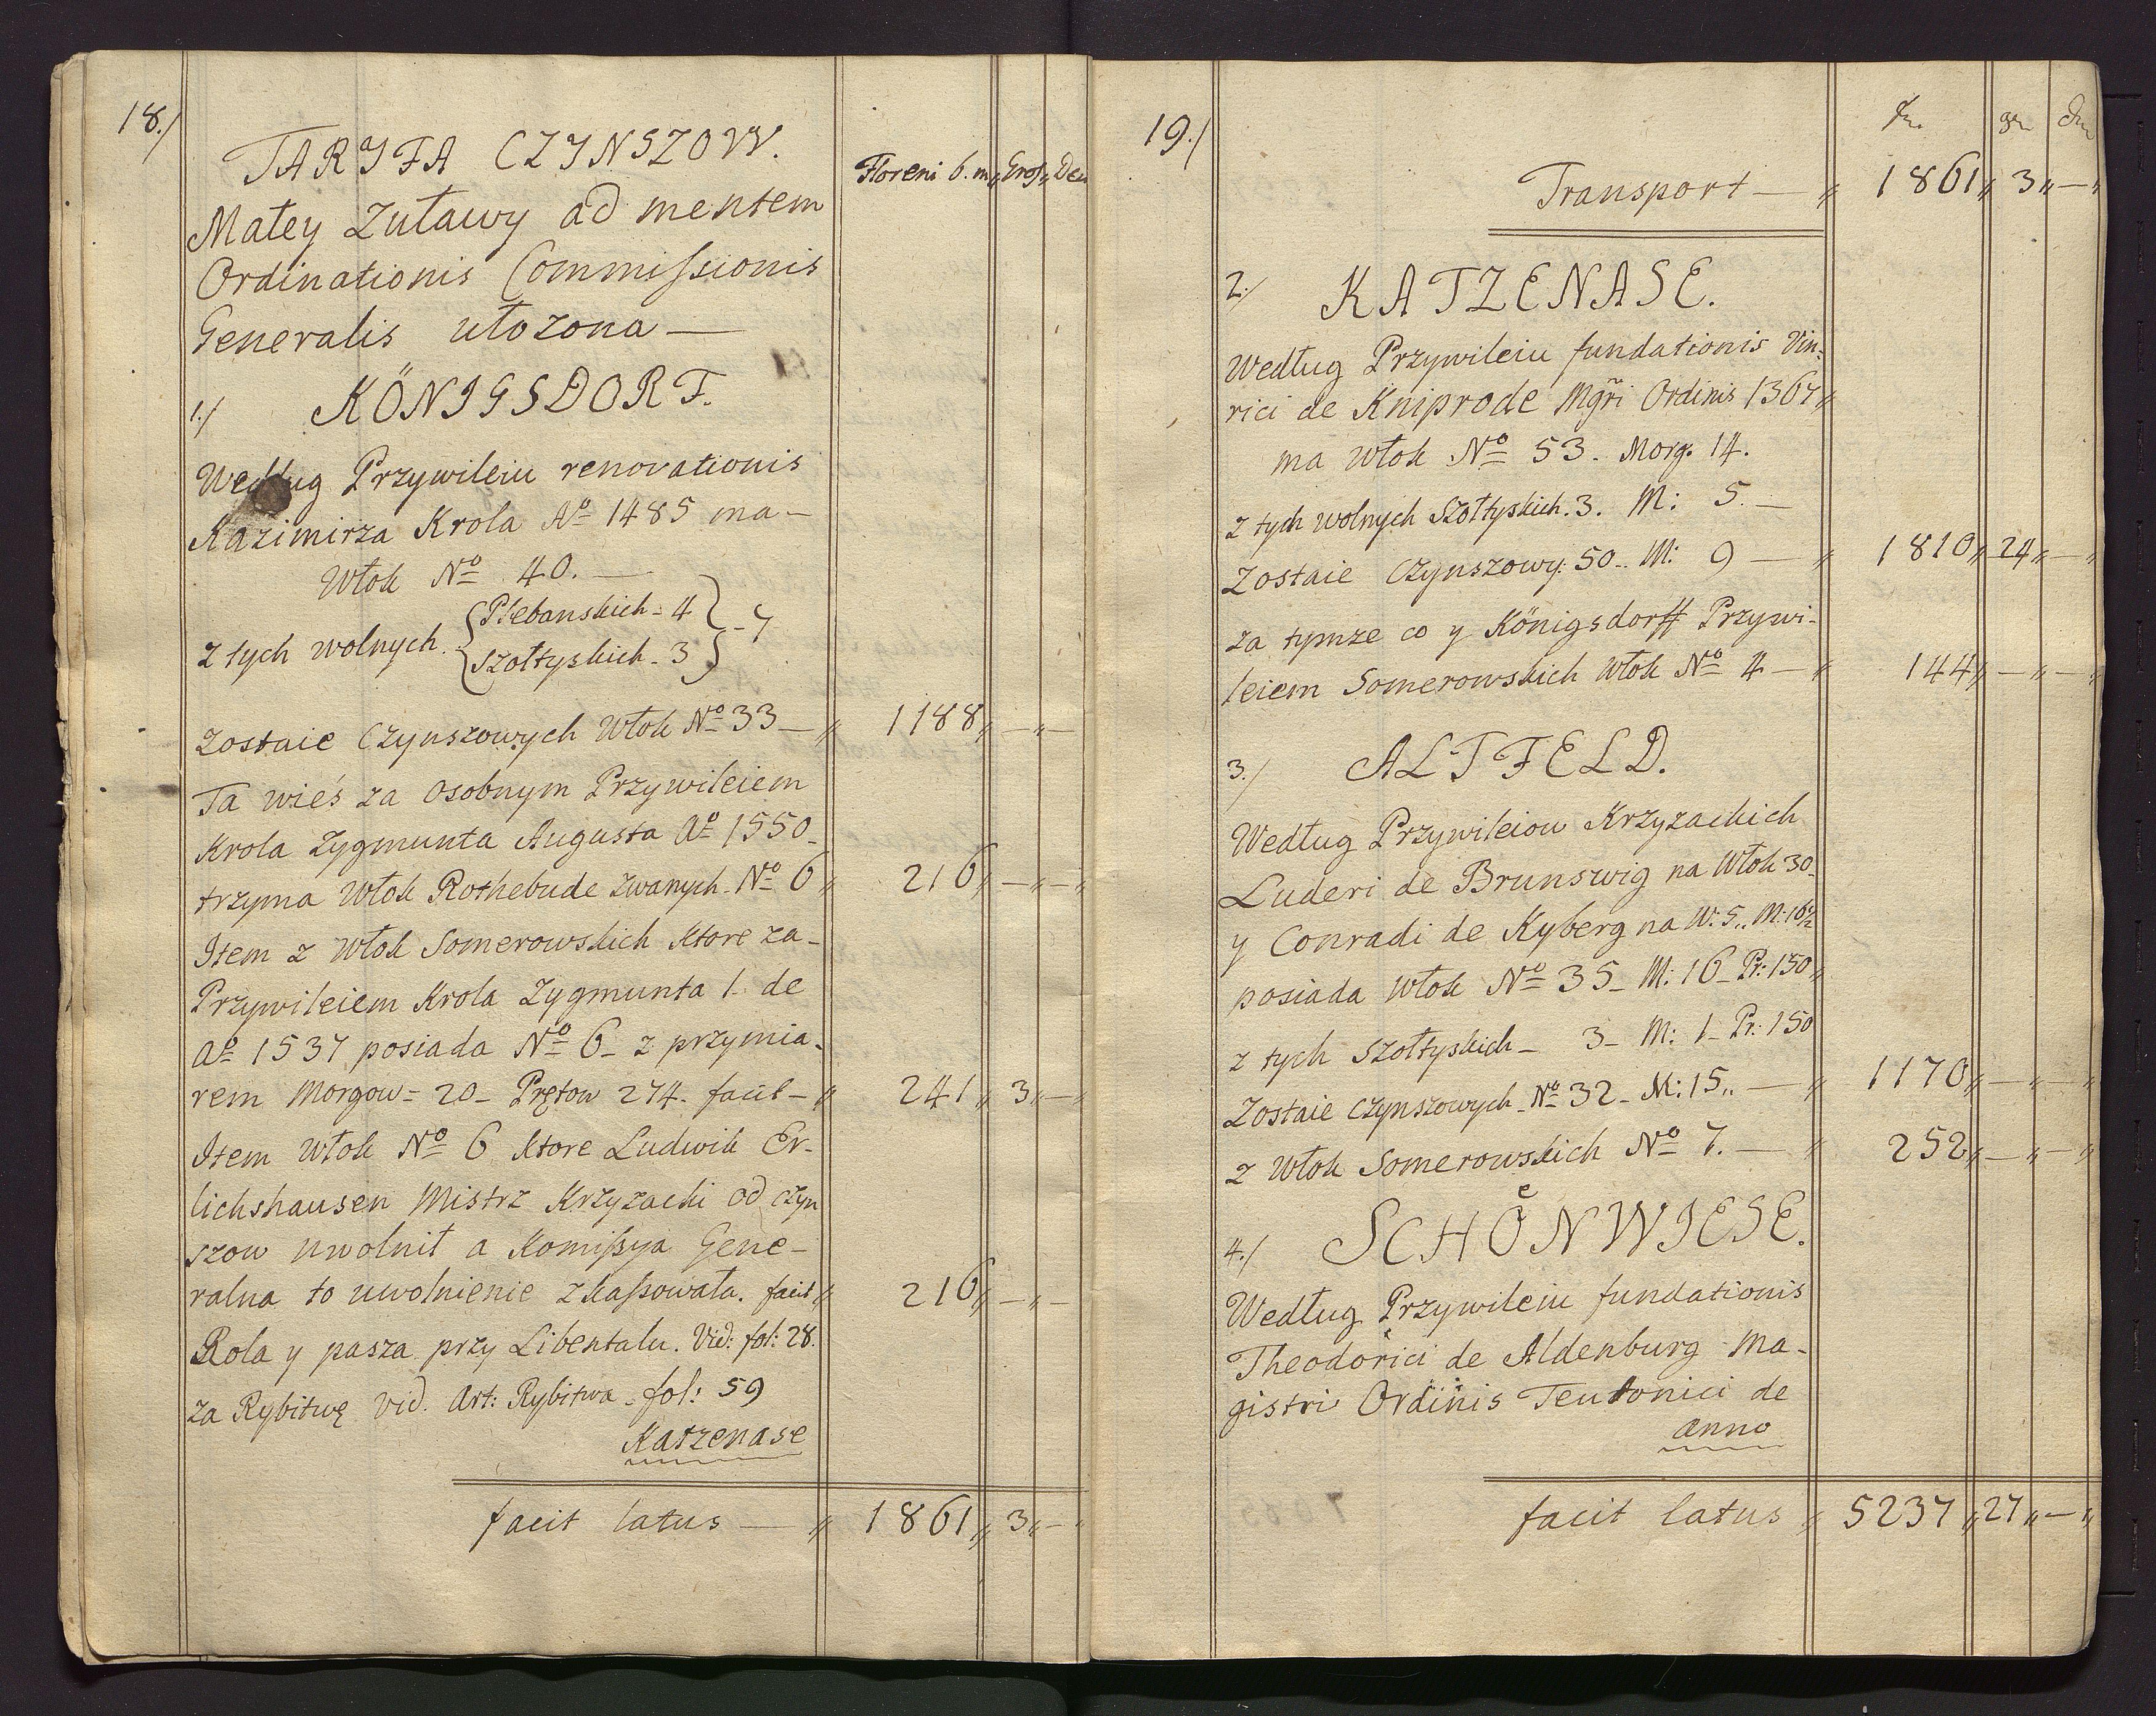 18./
TARYFA CZYNSZOW.
Floreni b. m,, Gros,, Den
Małey Zuławy ad mentem
Ordinationis Commissionis
Generalis ułozona —
1./ KÖNIGSDORF.
Według Przywileiu renovationis
Kazimirza Krola Aº 1485 ma –
Włok Nº 40. —
z tych wolnych. { Plebanskich - 4 } - 7
Szołtyskich - 3
Zostaie Czynszowych Włok Nº 33 — ,, 1188 ,, — ,, —
Ta wieś za osobnym Przywileiem
Krola Zygmunta Augusta Aº 1550 –
trzyma Włok Rothebude zwanych. Nº 6 ,, 216 ,, — ,, —
Item z Włok Somerowskich ktore za –
Przywileiem Krola Zygmunta 1. de
Aº 1537 posiada Nº 6 – z przymia –
rem Morgow = 20 – Prętow 274. facit – ,, 241 ,, 3 ,, —
Item Włok Nº 6 ktore Ludwik Er –
lichshausen Mistrz Krzyzacki od czyn
szow uwolnił a Komissya Gene –
ralna to uwolnienie zkassowała. facit ,, 216 ,, — ,, —
Rola y pasza przy Libentalu. Vid: fol: 28.
za Rybitwę vid. Art: Rybitwa – fol: 59
Katzenase
facit latus — ,, 1861 ,, 3 ,, —
19./
fr. gr dr
Transport — ,, 1861 ,, 3 ,, — ,,
2./ KATZENASE.
Według Przywileiu fundationis Vin:
rici de Kniprode Mgri Ordinis 1367 ,,
ma Włok Nº 53. Morg. 14.
z tych wolnych Szołtyskich. 3. M: 5. —
Zostaie Czynszowy: 50.. M: 9 — ,, 1810 ,, 24 ,, — ,,
za tymze co y Königsdorff Przywi –
leiem Somerowskich Włok Nº 4 — ,, 144 ,, — ,, — ,,
3./ ALTFELD.
Według Przywileiow Krzyzackich
Luderi de Brunswig na Włok 30 –
y Conradi de Kyberg na W: 5.. M: 16½
posiada Włok Nº 35 – M: 16 – Pr: 150 ,,
z tych Szołtyskich – 3 – M: 1 – Pr: 150
Zostaie Czynszowych – Nº 32 – M: 15.. — ,, 1170 ,, — ,, — ,,
z Włok Somerowskich Nº 7. — ,, 252 ,, — ,, — ,,
4./ SCHOͤNWIESE.
Według Przywileiu fundationis
Theodorici de Aldenburg Ma –
gistri Ordinis Teutonici de
anno
facit latus ,, 5237 ,, 27 ,, — ,,